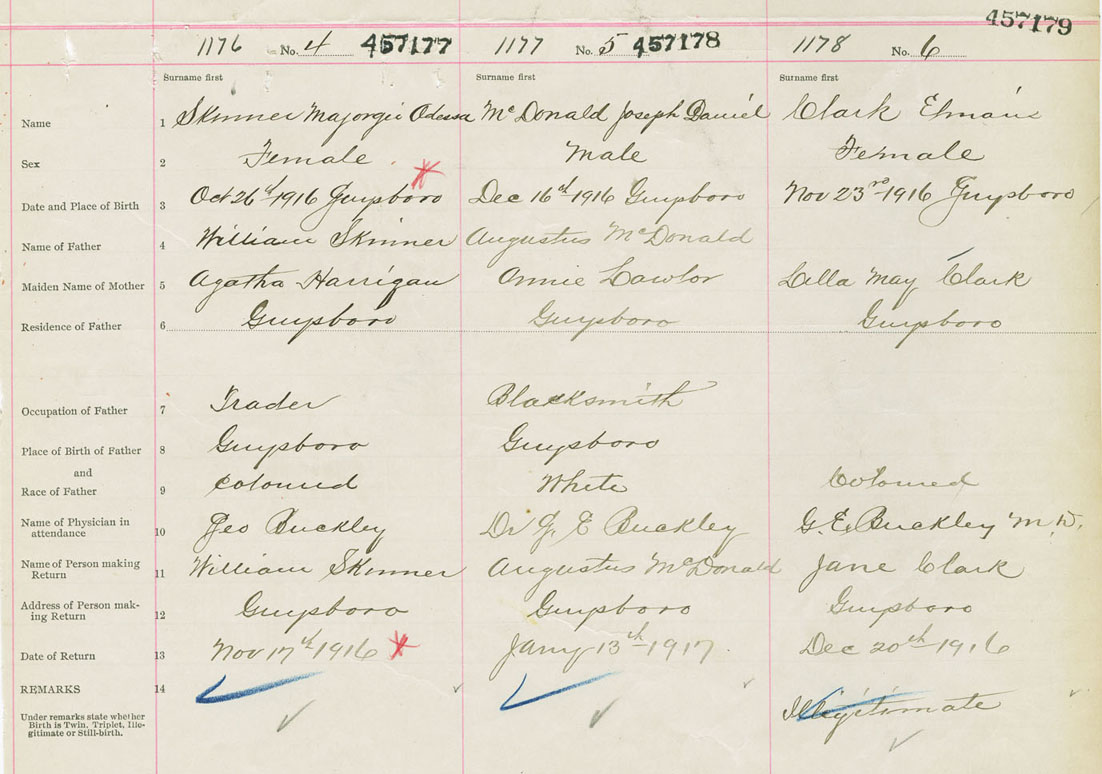 457179
1176 No. 4 457177 1177 No. 5 457178 1178 No. 6
Surname first Surname first Surname first
Name 1 Skinner Majorgie Odessa McDonald Joseph Daniel Clark
Sex 2 Female Male Female
Date and Place of Birth 3 Oct 26th 1916 Guysboro Dec 16th 1916 Guysboro Nov 23rd 1916 Guysboro
Name of Father 4 William Skinner Augustus McDonald
Maiden Name of Mother 5 Agatha Harrigan Annie Lawlor Lella May Clark
Residence of Father 6 Guysboro Guysboro Guysboro
Occupation of Father 7 Trader Blacksmith
Place of Birth of Father 8 Guysboro Guysboro
and
Race of Father 9 Coloured White Coloured
Name of Physician in
attendance 10 Geo Buckley Dr G. E Buckley G. E. Buckley M.D.
Name of Person making
Return 11 William Skinner Augustus McDonald Jane Clark
Address of Person mak-
ing Return 12 Guysboro Guysboro Guysboro
Date of Return 13 Nov 17th 1916 Jany 13th 1917. Dec 20th 1916
REMARKS 14 Illegitimate
Under remarks state whether
Birth is Twin, Triplet, Ille-
gitimate or Still-birth.